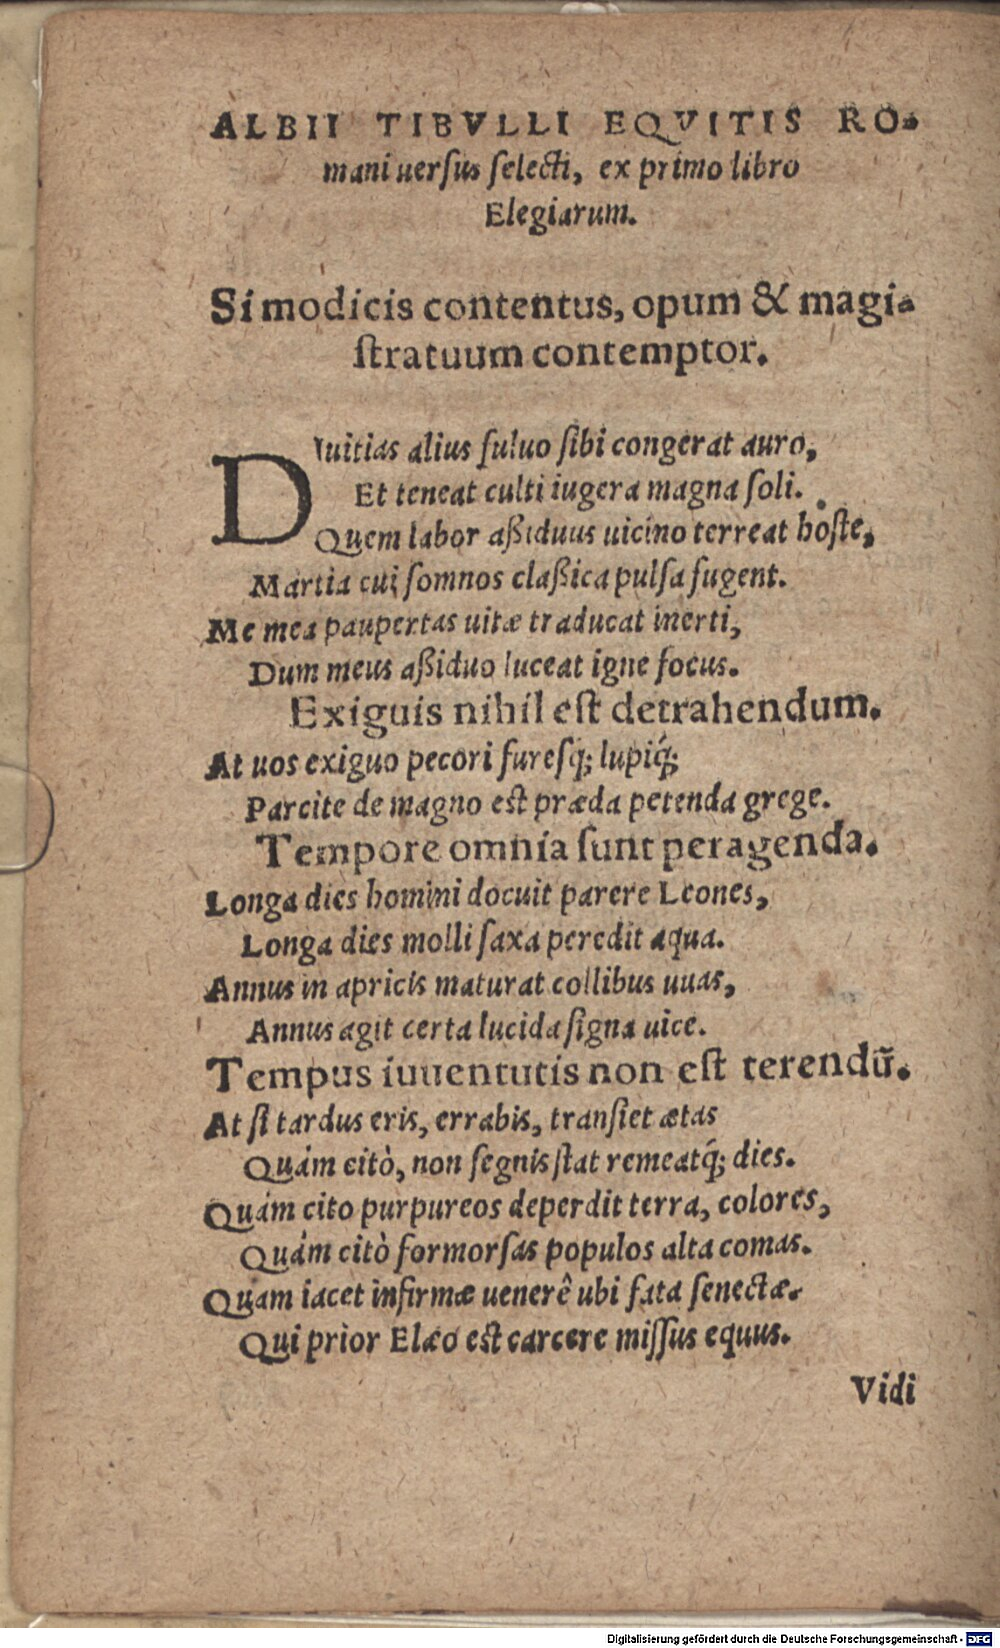 ALBII TIBVLLI EQVITIS RO-
mani uersus selecti, ex primo libro
Elegiarum.
Si modicis contentus, opum & magi-
stratuum contemptor.
DIuitias alius fuluo sibi congerat auro,
Et teneat culti iugera magna soli.
Quem labor aßiduus uicino terreat hoste,
Martia cui somnos claßica pulsa fugent.
Me mea paupertas uitæ traducat inerti,
Dum meus aßiduo luceat igne focus.
Exiguis nihil est detrahendum.
At uos exiguo pecori furesq; lupiq́;
Parcite de magno est præda petenda grege.
Tempore omnia sunt peragenda.
Longa dies homini docuit parere Leones,
Longa dies molli saxa peredit aqua.
Annus in apricis maturat collibus uuas,
Annus agit certa lucida signa uice.
Tempus iuuentutis non est terendū.
At si tardus eris, errabis, transiet ætas
Quám citò, non segnis stat remeatq́; dies.
Quám cito purpureos deperdit terra, colores,
Quám citò formorsas populos alta comas.
Quam iacet infirmæ uenerê ubi fata senectæ.
Qui prior Elæo est carcere missus equus.
Vidi
Digitalisierung gefördert durch die Deutsche Forschungsgemeinschaft - DFG